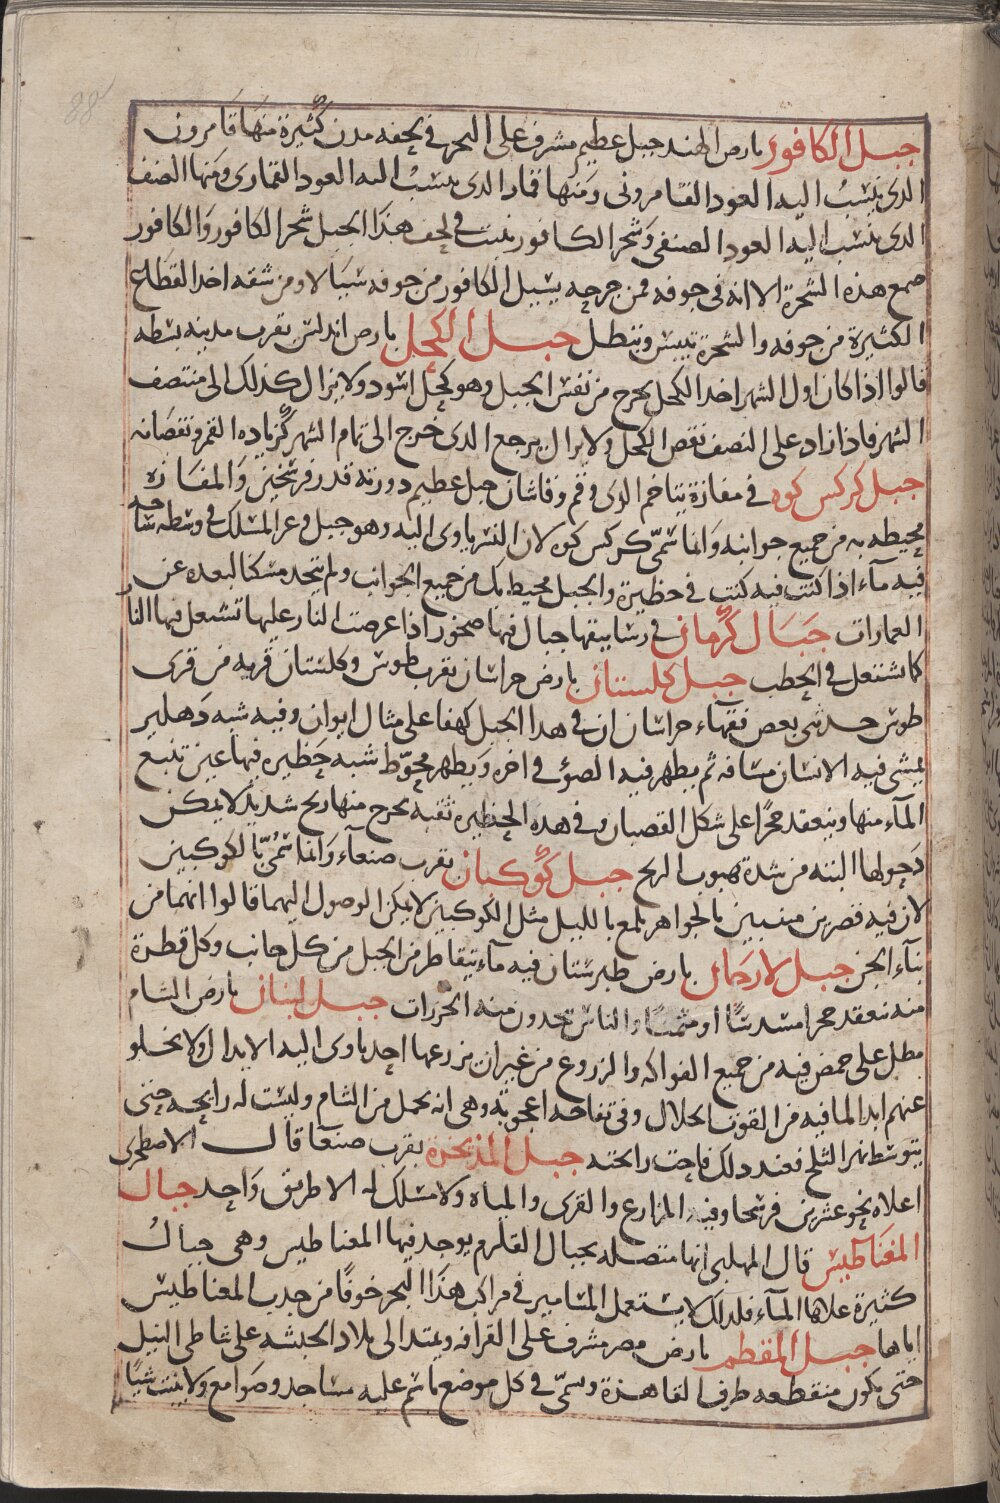 جبل الكافور بارض الهند جبل عظيم مشرف على البحر في لحفه مدن كثيرة منها قامرون
الذى ينسب اليه العود القامرونى ومنها قمار الدى ينسب اليه العود القمارى ومنها الصنف
الدى ينسب اليه العود الصنفى وشجر الكافور ينبت في لحف هذا الجبل شجر الكافور والكافور
صمغ هذه الشجرة الا انه فى جوفه فمن جرحه يسيل الكافور من جوفه سيالا ومن شقه اخد القطاع
الكثيرة من جوفه والشجرة تيبس وتبطل جبل الكحل بارص اندلس بقرب مدينه بسطه
قالوا اذا كان اول الشهر اخد الكحل يخرج من نفس الجبل وهو كحل اسود ولا يزال كذلك الى منتصف
الشهر فاذا زاد على النصف نقص الكحل ولا يزال يرجع الدى خرج الى تمام الشهر كزياده القمر ونقصانه
جبل كركس كوه في مفازة يتاخم الرى وقم وقاشان جبل عظيم دورته قدر فرسخين والمفازه
محيطه به من جميع جوانبه وانما سمى كركس كوه لان النسر ياوى اليه وهو جبل وعر المسلك في وسطه ساحه
فيه مآء اذا كنت فيه كنت في حظيرة والجبل محيط بك من جميع الجوانب ولم يتخد مسكنا لبعده عن
العمارات جبال كرمان في رساتيقها جبال فيها صخور اذا عرضت النار عليها تشتعل فيها النار
كما تشتعل في الحطب جبل كلستان بارض خراسان بقرب طوس وكلستان قريه من قرى
طوس حدثنى بعض فقهآء خراسان ان في هدا الجبل كهفا على مثال ايوان وفيه شبه دهليز
يمشى فيه الانسان مسافه ثم يظهر فيه الصوء في اخره ويظهر محوّط شبه حظيره فيها عين تنبع
المآء منها وينعقد حجرًا على شكل القضبان وفى هذه الحظيره ثقبه يخرج منها ريح شديد لا يمكن
دخولها البته من شدة هبوب الريح جبل كوكبان بقرب صنعآء وانما سمى بالكوكبين
لان فيه قصرين مبنيين بالجواهر يلمع بالليل مثل الكوكبين لا يمكن الوصول اليهما قالوا انهما من
بنآء الجن جبل لارجان بارض طبرستان فيه مآء يتقاطر من الجبل من كل جانب وكل قطرة
منه تنعقد حجرا مسدسًا او مثمنًا والناس يتخدون منه الخرزات جبل لبنان بارض الشام
مطل على حمص فيه من جميع الفواكه والزروع من غير ان يزرعها احد ياوى اليه الابدال ولا يخلو
عنهم ابدا لما فيه من القوت الحلال وفي تفاحه اعجوبة وهى انه يحمل من الشام وليست له رايحه حتى
يتوسط نهر الثلج فعند ذلك فاحت رائحته جبل المذيخرة بقرب صنعآ قال الاصطخرى
اعلاه نحو عشرين فرسخا وفيه المزارع والقرى والمياه ولا مسلك له الا طريق واحد جبال
المغناطيس قال المهلبى انها متصله بجبال القلزم يوجد فيها المغناطيس وهى جبال
كثيرة علاها المآء فلذلك لا يستعمل المسامير في مراكب هذا البحر خوفًا من جدب المغناطيس
اياها جبل المقطم بارض مصر مشرف على القرافه ويمتد الى بلاد الحبشه على شاطى النيل
حتى يكون منقطعه طرف القاهذة وسمّى في كل موضع باسم عليه مساجد وصوامع ولا ينبت شيئًا